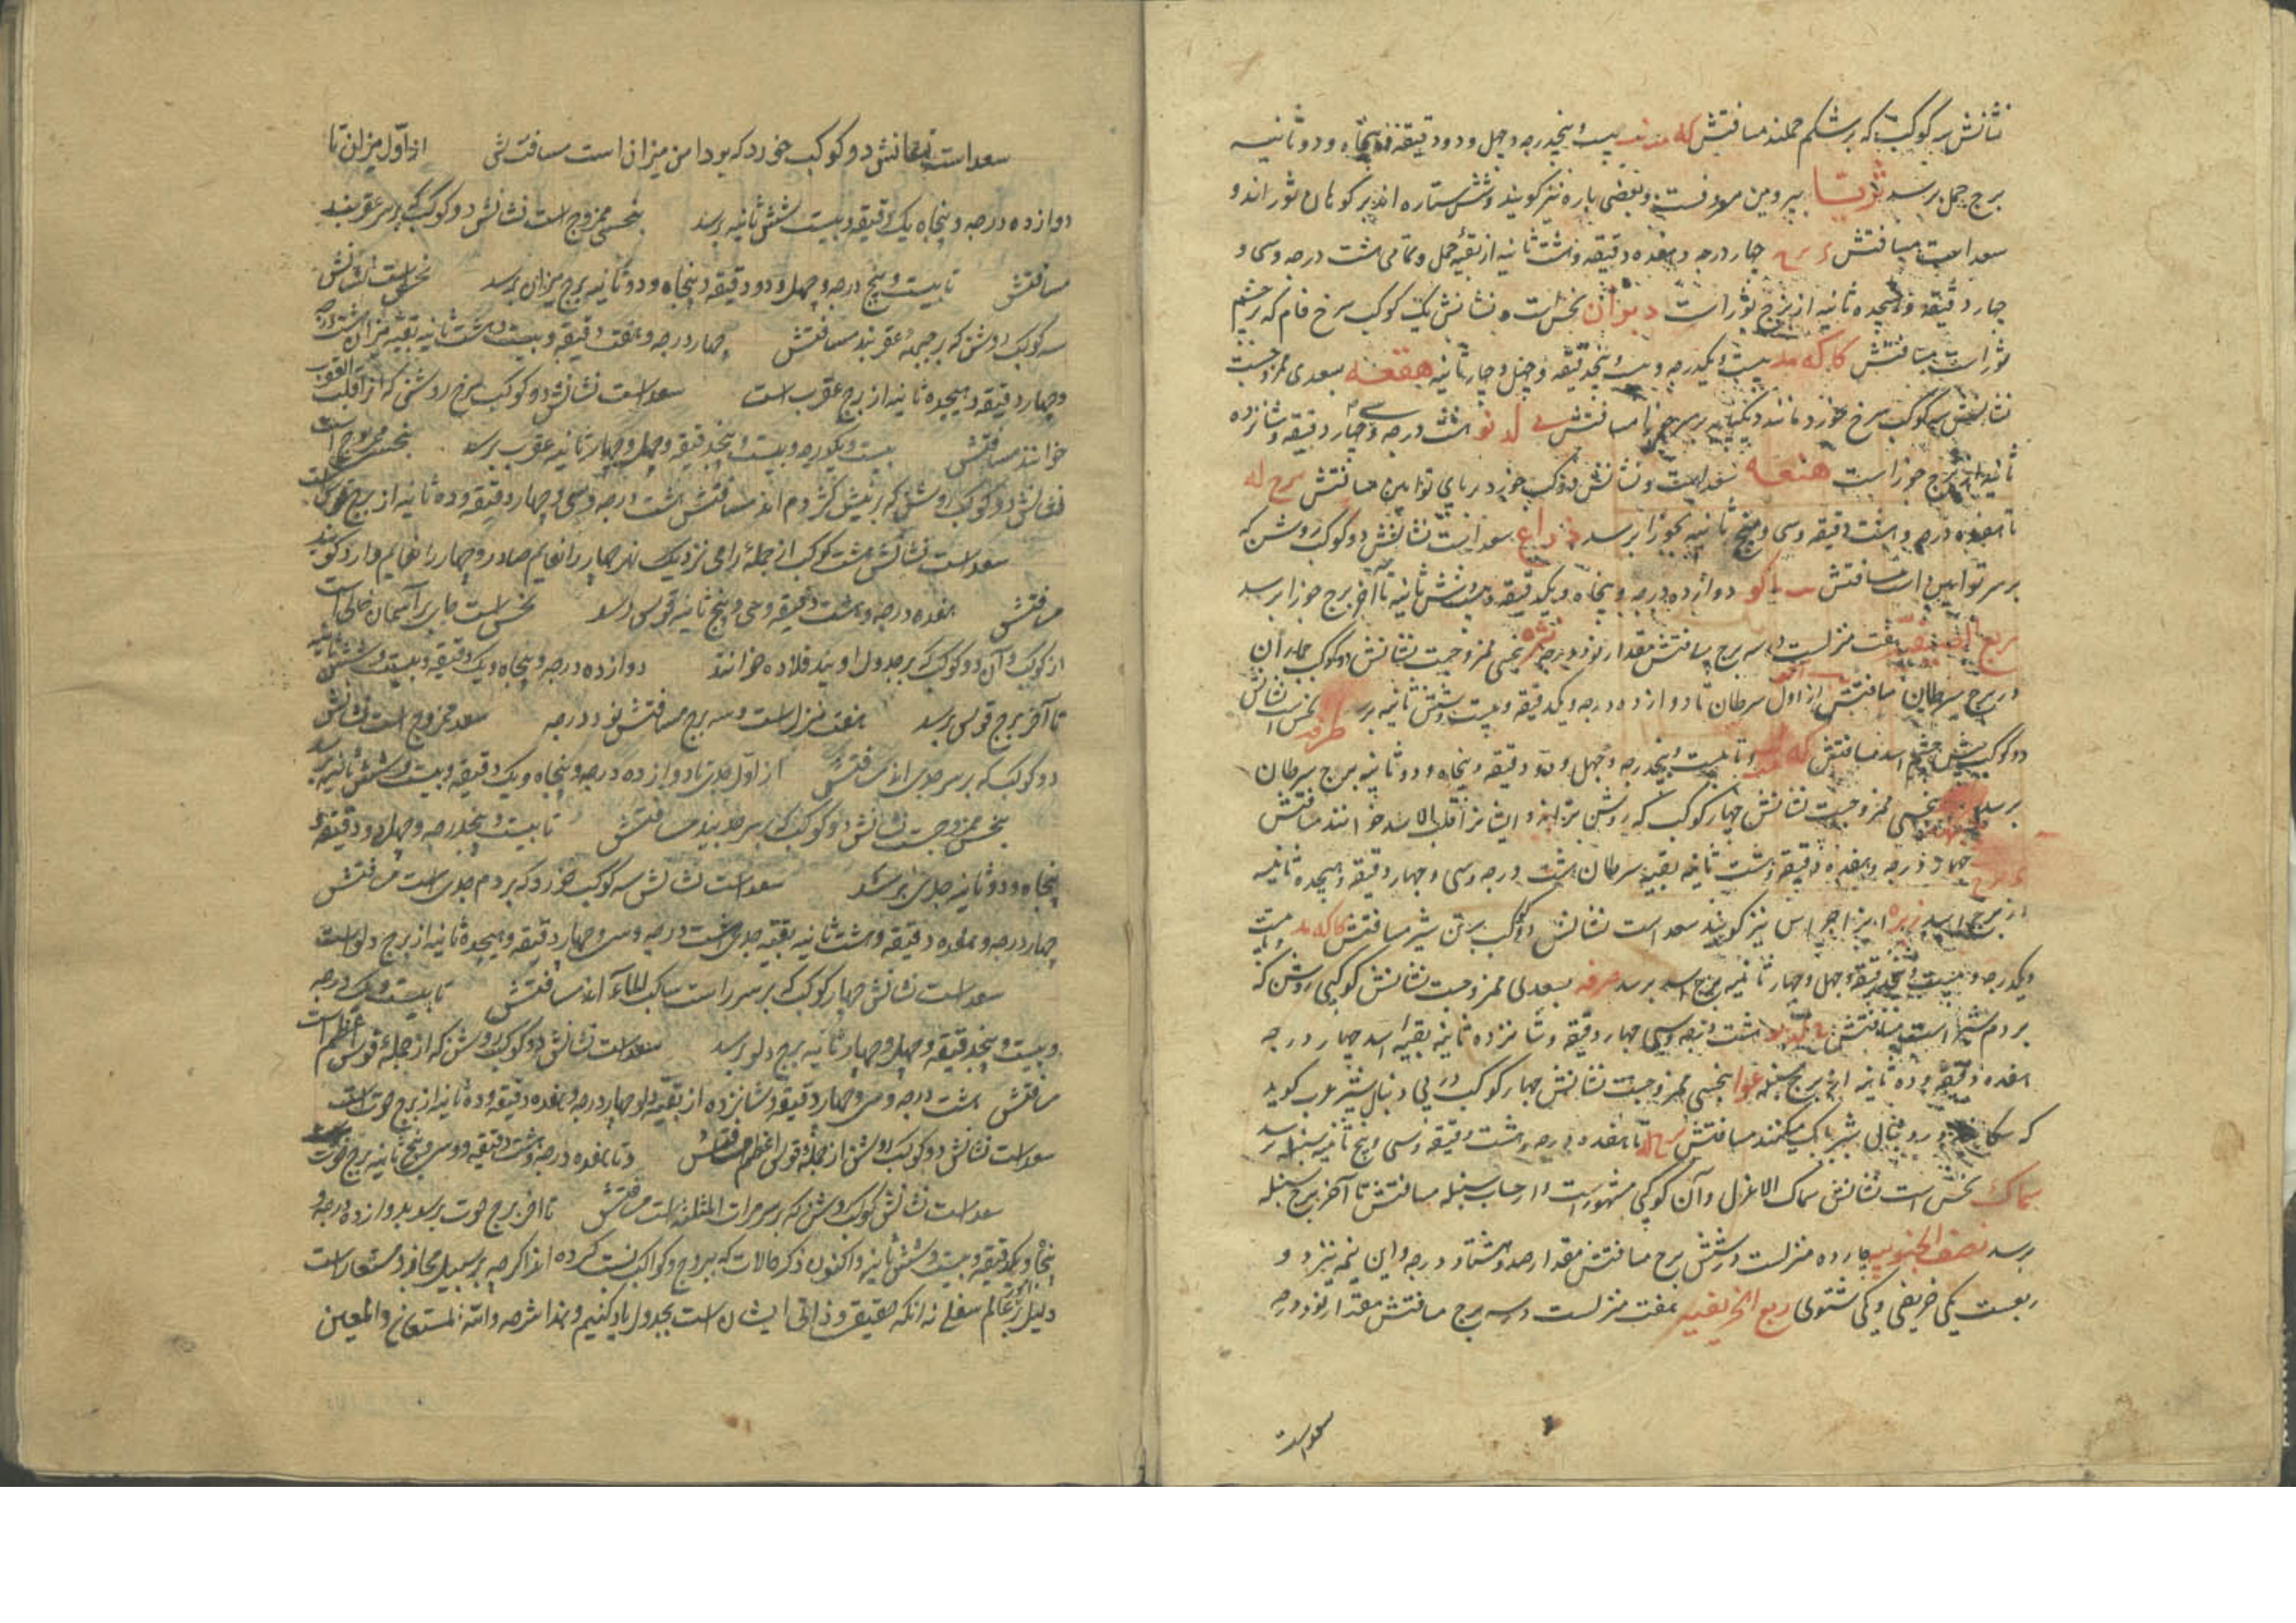 نشانش سه کوکبست که بر شکم حملند مسافتش که مد نب بیست و پنجدرجه و چهل و دو دقیقه و پنجاه و دو ثانیه
برج حمل برسد ثریا پروین معروفست و بعضی پاره نیز کویند و شش ستاره اند بر کوهان ثور اند و
سعد است مسافتش چهار درجه و هفده دقیقه و هشت ثانیه از بقیهٔ حمل و تمامی هشت درجه و سی و
چهار دقیقه و هیجده ثانیه از برج ثور است دبران نحس است و نشانش یک کوکب سرخ فام که بر چشم
ثور است مسافتش کا که مد بیست و یکدرجه و بیست و پنجدقیقه و چهل و چار ثانیه هقعه بسعدی ممزوجست
نشانش سه کوکب سرخ خورد مانند دیکپایه بر سر جوزا مسافتش ح لد نو هشت درجه و سی و چهار دقیقه و شانزده
ثانیه از برج جوزا است هنعه سعد است و نشانش دو کوکب خورد بر پای توامین مسافتش یز ح له
تا هفده درجه و هشت دقیقه و سی و پنج ثانیه بجوزا برسد ذراع سعد است نشانش دو کوکب روشن که
بر سر توامین است مسافتش دوازده درجه و پنجاه و یکدقیقه و بیست و شش ثانیه تا آخر برج جوزا برسد
ربع الصیفیه هفت منزلست و سه برج مسافتش مقدار نود درجه نثره بنحسی ممزوجست نشانش دو کوکب
در برج سرطان مسافتش از اول سرطان تا دوازده درجه و یکدقیقه و بیست و شش ثانیه برسد طرفه نحس است نشانش
دو کوکب پیش چشم اسد مسافتش که تا بیست و پنجدرجه و چهل و دو دقیقه و پنجاه و دو ثانیه برج سرطان
برسد جبهه بنحسی ممزوجست نشانش چهار کوکب که روشن تراند و ایشانرا قلب الاسد خوانند مسافتش
چهار درجه و هفده دقیقه و هشت ثانیه بقیه سرطان هشت درجه و سی و چهار دقیقه و هیجده ثانیه
از برج اسد زبره نیز کویند سعد است نشانش دو کوکب بر تن شیر مسافتش کا که مد بیست
و یکدرجه و بیست و پنجدقیقه و چهل و چهار ثانیه برج اسد برسد صرفه بسعدی ممزوجست نشانش کوکبی روشن که
بر دم شیر است مسافتش هشت درجه و سی و چهار دقیقه و شانزده ثانیه بقیه اسد چهار درجه
هفده دقیقه و ده ثانیه از برج سنبله عوا بنحسی ممزوجست نشانش چهار کوکب در پی دنبال شیر عرب کوید
که سکانند و در دنبال شیر بانک میکنند مسافتش تا هفده درجه و هشت دقیقه و سی و پنج ثانیه سنبله برسد
سماک نحس است نشانش سماک الاعزل و آن کوکبی مشهور است از حساب سنبله مسافتش تا آخر برج سنبله
برسد نصف الجنوبیه چارده منزلست و شش برج مسافتش مقدار صد و هشتاد درجه و این نیمه نیز دو
ربعست یکی خریفی و یکی شتوی ربع الخریفیه هفت منزلست و سه برج مسافتش مقدار نود درجه
سعد است
سعد است نشانش دو کوکب خورد که بر دامن میزان است مسافتش از اول میزان تا
دوازده درجه و پنجاه یک دقیقه و بیست شش ثانیه برسد بنحسی ممزوج است نشانش دو کوکب که بر سر عقربند
مسافتش تا بیست و پنج درجه و چهل و دو دقیقه و پنجاه و دو ثانیه برج میزان برسد نحس است نشانش
سه کوکب روشن که بر جبههٔ عقربند مسافتش چهار درجه و هفت دقیقه و بیست و هشت ثانیه بقیهٔ میزان هشت درجه
و چهار دقیقه و هیجده ثانیه از برج عقرب است سعد است نشانش دو کوکب سرخ روشنی که از قلب العقرب
خوانند مسافتش بیست و یکدرجه و بیست و پنجدقیقه و چهل و چهار ثانیه عقرب برسد بنحسی ممزوج است
نشانش دو کوکب روشن که بر نیش کژدم اند مسافتش هشت درجه و سی و چهار دقیقه و ده ثانیه از برج قوس است
سعد است نشانش هشت کوکب از جملهٔ رامی نزدیک نهر چهار را نعایم صادر و چهار را نعایم وارد کویند
مسافتش هفده درجه و هشت دقیقه و سی و پنج ثانیه قوس رسد نحس است جای بر آسمان خالی است
از کوکب و آن دو کوکب که بر جدول اویند قلاده خوانند دوازده درجه و پنجاه و یک دقیقه و بیست و شش ثانیه
تا آخر برج قوس برسد هفت منزل است و سه برج مسافتش نود درجه سعد ممزوج است نشانش
دو کوکب که بر سر جدی اند مسافتش از اول جدی تا دوازده درجه و پنجاه و یک دقیقه و بیست و شش ثانیه برسد
بنحس ممزوجست نشانش دو کوکب که بر سر جدیند مسافتش تا بیست و پنجدرجه و چهل و دو دقیقهٔ
پنجاه و دو ثانیه جدی برسد سعد است نشانش سه کوکب خورد که بر دم جدی است مسافتش
چهار درجه و هفده دقیقه و هشت ثانیه بقیه جدی هشت درجه و سی و چهار دقیقه و هیجده ثانیه از برج دلو است
سعد است نشانش چهار کوکب که بر سر راست ساکب الماء اند مسافتش تا بیست و یک درجه
و بیست و پنجدقیقه و چهل و چهار ثانیه برج دلو رسد سعد است نشانش دو کوکب روشن که از جملهٔ فرس اعظم است
مسافتش هشت درجه و سی و چهار دقیقه و شانزده از بقیه دلو چهار درجه و هفده دقیقه و ده ثانیه از برج حوت است
سعد است نشانش دو کوکب روشن از جملهٔ فرس اعظم مسافتش و تا هفده درجه و هشت دقیقه و سی و پنج ثانیه برج حوت
سعد است نشانش کوکب روشن که بر سر مراة المثلثه است مسافتش تا آخر برج حوت برسد بدوازده درجه و
پنجاه و یکدقیقه و بیست و شش ثانیه و اکنون ذکر حالات که ببروج و کواکب نسبت کرده اند اکر چه بر سبیل مجاز و مستعار است
دلیل بر عالم سفلی نه انکه حقیقی و ذاتی ایشان است بجدول یاد کنیم و هذا شرحه والله المستعان والمعین